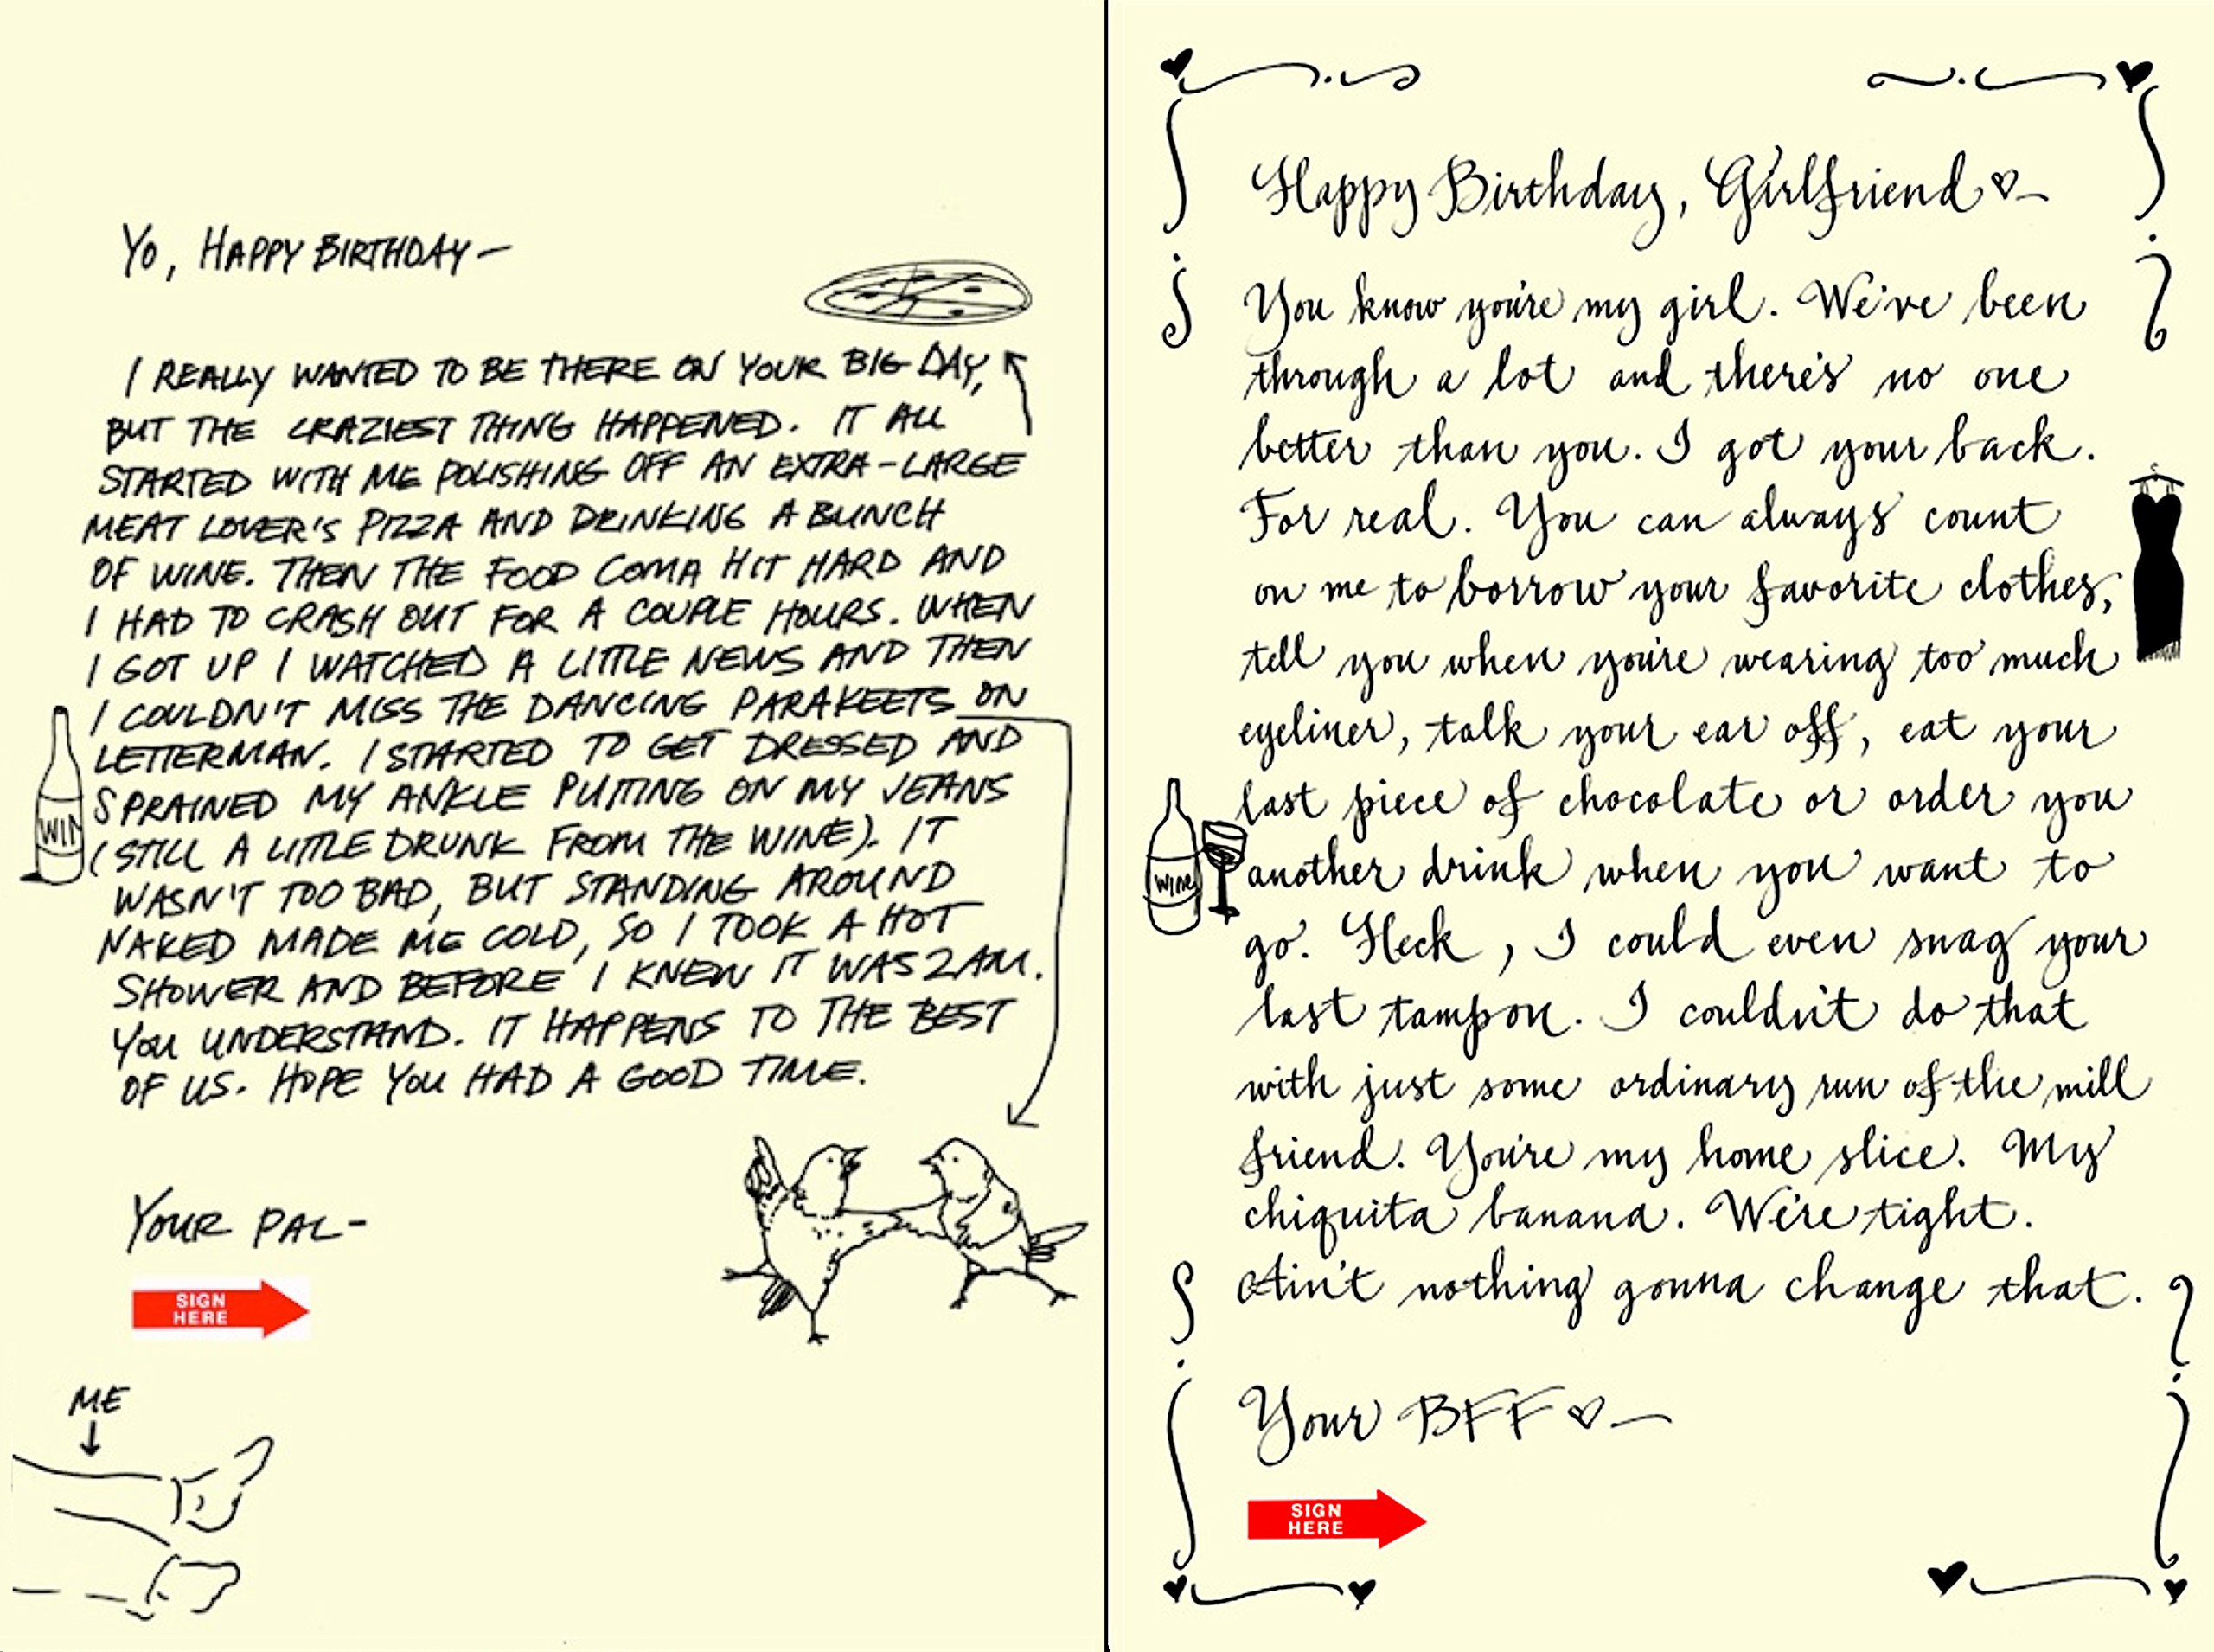 Yo, HAPPY BIRTHDAY —
I REALLY WANTED TO BE THERE ON YOUR BIG DAY,
BUT THE CRAZIEST THING HAPPENED. IT ALL
STARTED WITH ME POLISHING OFF AN EXTRA-LARGE
MEAT LOVER'S PIZZA AND DRINKING A BUNCH
OF WINE. THEN THE FOOD COMA HIT HARD AND
I HAD TO CRASH OUT FOR A COUPLE HOURS. WHEN
I GOT UP I WATCHED A LITTLE NEWS AND THEN
I COULDN'T MISS THE DANCING PARAKEETS ON
LETTERMAN. I STARTED TO GET DRESSED AND
SPRAINED MY ANKLE PUTTING ON MY JEANS
(STILL A LITTLE DRUNK FROM THE WINE). IT
WASN'T TOO BAD, BUT STANDING AROUND
NAKED MADE ME COLD, SO I TOOK A HOT
SHOWER AND BEFORE I KNEW IT WAS 2AM.
YOU UNDERSTAND. IT HAPPENS TO THE BEST
OF US. HOPE YOU HAD A GOOD TIME.
WIN
YOUR PAL-
SIGN
HERE
ME
Happy Birthday, Girlfriend ♡—
You know you're my girl. We've been
through a lot and there's no one
better than you. I got your back.
For real. You can always count
on me to borrow your favorite clothes,
tell you when you're wearing too much
eyeliner, talk your ear off, eat your
last piece of chocolate or order you
another drink when you want to
go. Heck, I could even snag your
last tampon. I couldn't do that
with just some ordinary run of the mill
friend. You're my home slice. My
chiquita banana. We're tight.
Ain't nothing gonna change that.
WINE
Your BFF ♡—
SIGN
HERE